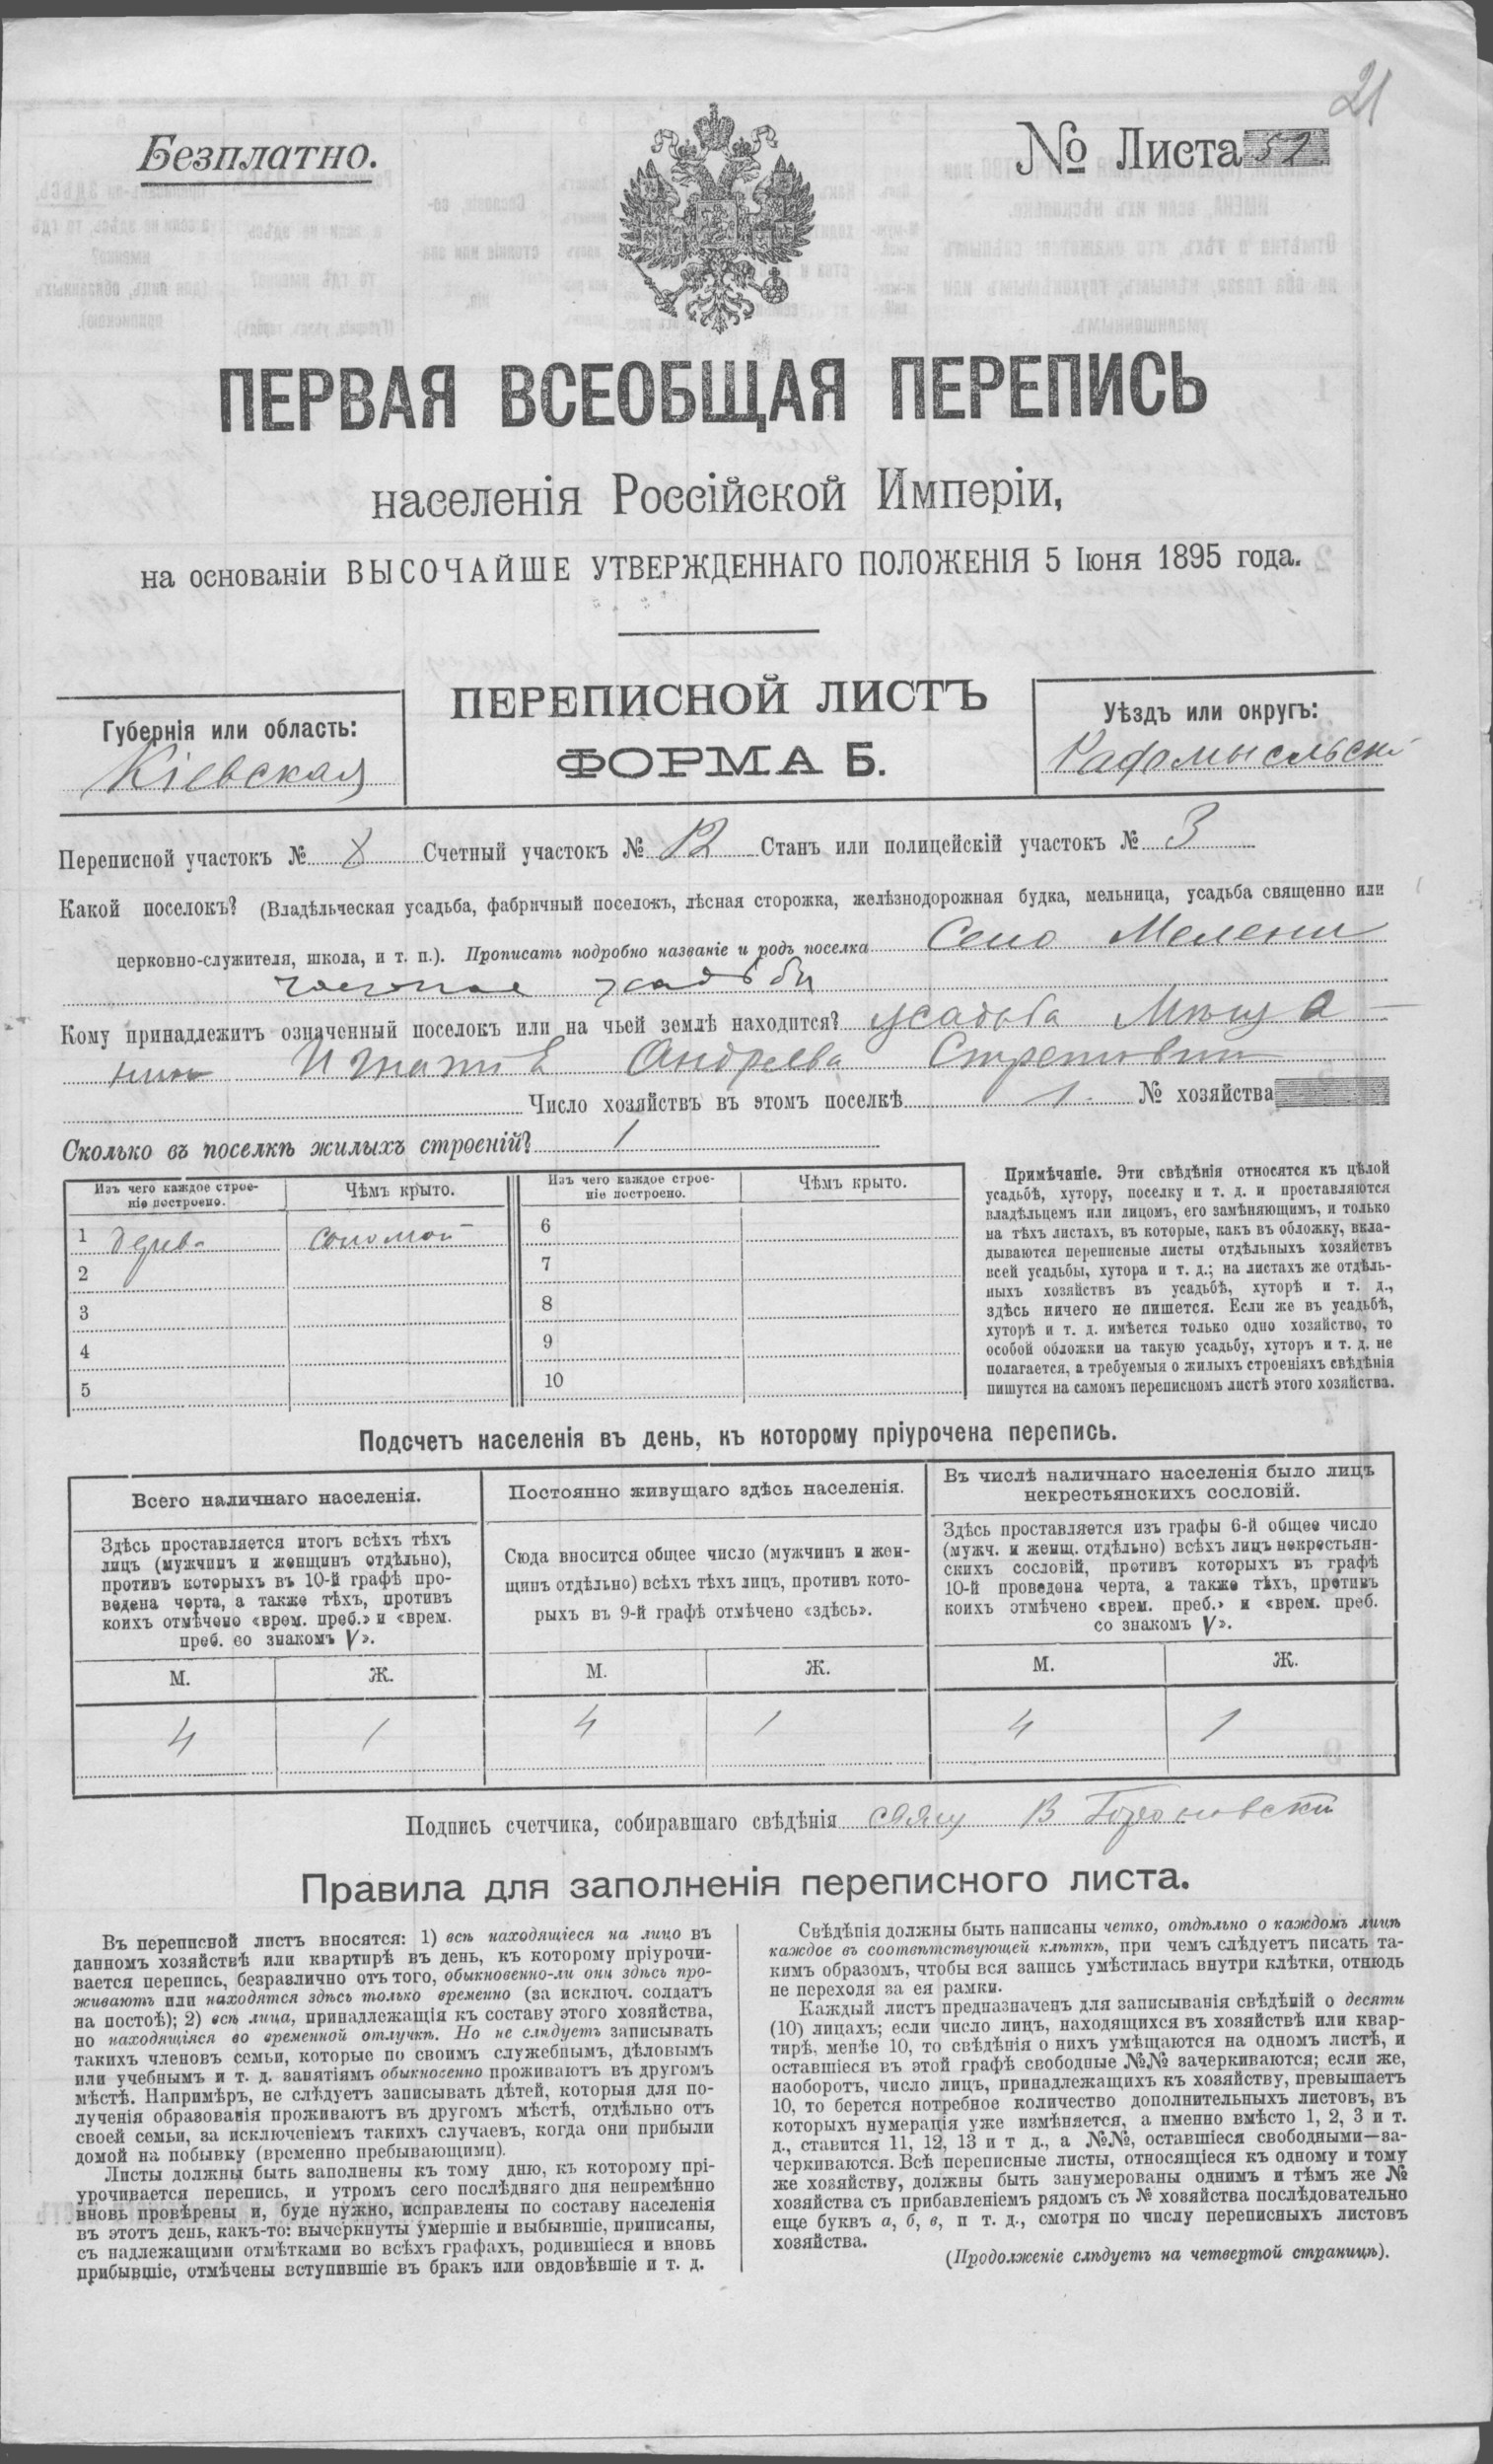 21
Безплатно.
№ Листа 52
ПЕРВАЯ ВСЕОБЩАЯ ПЕРЕПИСЬ
населенія Россійской Имперіи,
на основаніи ВЫСОЧАЙШЕ УТВЕРЖДЕННАГО ПОЛОЖЕНІЯ 5 Іюня 1895 года.
Губернія или область:
Кіевская
ПЕРЕПИСНОЙ ЛИСТЪ
ФОРМА Б.
Уѣздъ или округъ:
Радомысльскі
Переписной участокъ № Счетный участокъ № 12 Станъ или полицейскій участокъ № 3
Какой поселокъ? (Владѣльческая усадьба, фабричный поселокъ, лѣсная сторожка, желѣзнодорожная будка, мельница, усадьба священно или
церковно-служителя, школа, и т. п.). Прописать подробно названіе и родъ поселка Село Мелени
усадьбы
Кому принадлежитъ означенный поселокъ или на чьей землѣ находится? усадьба Мѣща-
Андреева
Число хозяйствъ въ этомъ поселкѣ 1. № хозяйства
Сколько въ поселкѣ жилыхъ строеній? 1
Изъ чего каждое строе-
ніе построено.
Чѣмъ крыто.
Изъ чего каждое строе-
ніе построено.
Чѣмъ крыто.
1 дерев. соломой
2
3
4
5
6
7
8
9
10
Примѣчаніе. Эти свѣдѣнія относятся къ цѣлой
усадьбѣ, хутору, поселку и т. д. и проставляются
владѣльцемъ или лицомъ, его замѣняющимъ, и только
на тѣхъ листахъ, въ которые, какъ въ обложку, вкла-
дываются переписные листы отдѣльныхъ хозяйствъ
всей усадьбы, хутора и т. д.; на листахъ же отдѣль-
ныхъ хозяйствъ въ усадьбѣ, хуторѣ и т. д.,
здѣсь ничего не пишется. Если же въ усадьбѣ,
хуторѣ и т. д. имѣется только одно хозяйство, то
особой обложки на такую усадьбу, хуторъ и т. д. не
полагается, а требуемыя о жилыхъ строеніяхъ свѣдѣнія
пишутся на самомъ переписномъ листѣ этого хозяйства.
Подсчетъ населенія въ день, къ которому пріурочена перепись.
Всего наличнаго населенія.
Здѣсь проставляется итогъ всѣхъ тѣхъ
лицъ (мужчинъ и женщинъ отдѣльно),
противъ которыхъ въ 10-й графѣ про-
ведена черта, а также тѣхъ, противъ
коихъ отмѣчено «врем. преб.» и «врем.
преб. со знакомъ V».
М. Ж.
4 1
Постоянно живущаго здѣсь населенія.
Сюда вносится общее число (мужчинъ и жен-
щинъ отдѣльно) всѣхъ тѣхъ лицъ, противъ кото-
рыхъ въ 9-й графѣ отмѣчено «здѣсь».
М. Ж.
4 1
Въ числѣ наличнаго населенія было лицъ
некрестьянскихъ сословій.
Здѣсь проставляется изъ графы 6-й общее число
(мужч. и женщ. отдѣльно) всѣхъ лицъ некрестьян-
скихъ сословій, противъ которыхъ въ графѣ
10-й проведена черта, а также тѣхъ, противъ
коихъ отмѣчено «врем. преб.» и «врем. преб.
со знакомъ V».
М. Ж.
4 1
Подпись счетчика, собиравшаго свѣдѣнія свящ В
Правила для заполненія переписного листа.
Въ переписной листъ вносятся: 1) всѣ находящіеся на лицо въ
данномъ хозяйствѣ или квартирѣ въ день, къ которому пріурочи-
вается перепись, безразлично отъ того, обыкновенно-ли они здѣсь про-
живаютъ или находятся здѣсь только временно (за исключ. солдатъ
на постоѣ); 2) всѣ лица, принадлежащія къ составу этого хозяйства,
но находящіяся во временной отлучкѣ. Но не слѣдуетъ записывать
такихъ членовъ семьи, которые по своимъ служебнымъ, дѣловымъ
или учебнымъ и т. д. занятіямъ обыкновенно проживаютъ въ другомъ
мѣстѣ. Напримѣръ, не слѣдуетъ записывать дѣтей, которыя для по-
лученія образованія проживаютъ въ другомъ мѣстѣ, отдѣльно отъ
своей семьи, за исключеніемъ такихъ случаевъ, когда они прибыли
домой на побывку (временно пребывающими).
Листы должны быть заполнены къ тому дню, къ которому прі-
урочивается перепись, и утромъ сего послѣдняго дня непремѣнно
вновь провѣрены и, буде нужно, исправлены по составу населенія
въ этотъ день, какъ-то: вычеркнуты умершіе и выбывшіе, приписаны,
съ надлежащими отмѣтками во всѣхъ графахъ, родившіеся и вновь
прибывшіе, отмѣчены вступившіе въ бракъ или овдовѣвшіе и т. д.
Свѣдѣнія должны быть написаны четко, отдѣльно о каждомъ лицѣ
каждое въ соотвѣтствующей клѣткѣ, при чемъ слѣдуетъ писать та-
кимъ образомъ, чтобы вся запись умѣстилась внутри клѣтки, отнюдь
не переходя за ея рамки.
Каждый листъ предназначенъ для записыванія свѣдѣній о десяти
(10) лицахъ; если число лицъ, находящихся въ хозяйствѣ или квар-
тирѣ, менѣе 10, то свѣдѣнія о нихъ умѣщаются на одномъ листѣ, и
оставшіеся въ этой графѣ свободные №№ зачеркиваются; если же,
наоборотъ, число лицъ, принадлежащихъ къ хозяйству, превышаетъ
10, то берется потребное количество дополнительныхъ листовъ, въ
которыхъ нумерація уже измѣняется, а именно вмѣсто 1, 2, 3 и т.
д., ставится 11, 12, 13 и т д., а №№, оставшіеся свободными—за-
черкиваются. Всѣ переписные листы, относящіеся къ одному и тому
же хозяйству, должны быть занумерованы однимъ и тѣмъ же №
хозяйства съ прибавленіемъ рядомъ съ № хозяйства послѣдовательно
еще буквъ а, б, в, и т. д., смотря по числу переписныхъ листовъ
хозяйства.
(Продолженіе слѣдуетъ на четвертой страницѣ).